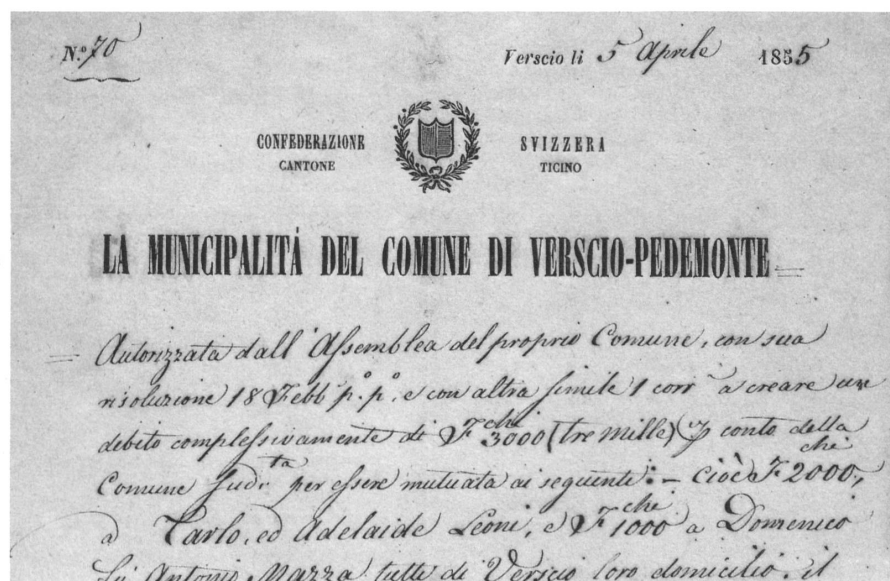 N.º 70
Verscio li 5 Aprile 1855
CONFEDERAZIONE SVIZZERA
CANTONE TICINO
LA MUNICIPALITÁ DEL COMUNE DI VERSCIO-PEDEMONTE
Autorizzata dall'Assemblea del proprio Comune, con sua
risoluzione 18 Febb p.º p.º e con altra simile 1 corr a creare un
debito complessivamente di F.chi 3000 (tre mille) conto della
Comune sud.ta per essere mutuata ai seguente: - cioè a F.chi 2000,
a Carlo, ed Adelaide Leoni, e F.chi 1000 a Domenico
fu Antonio Mazza tutti di Verscio loro domicilio, il